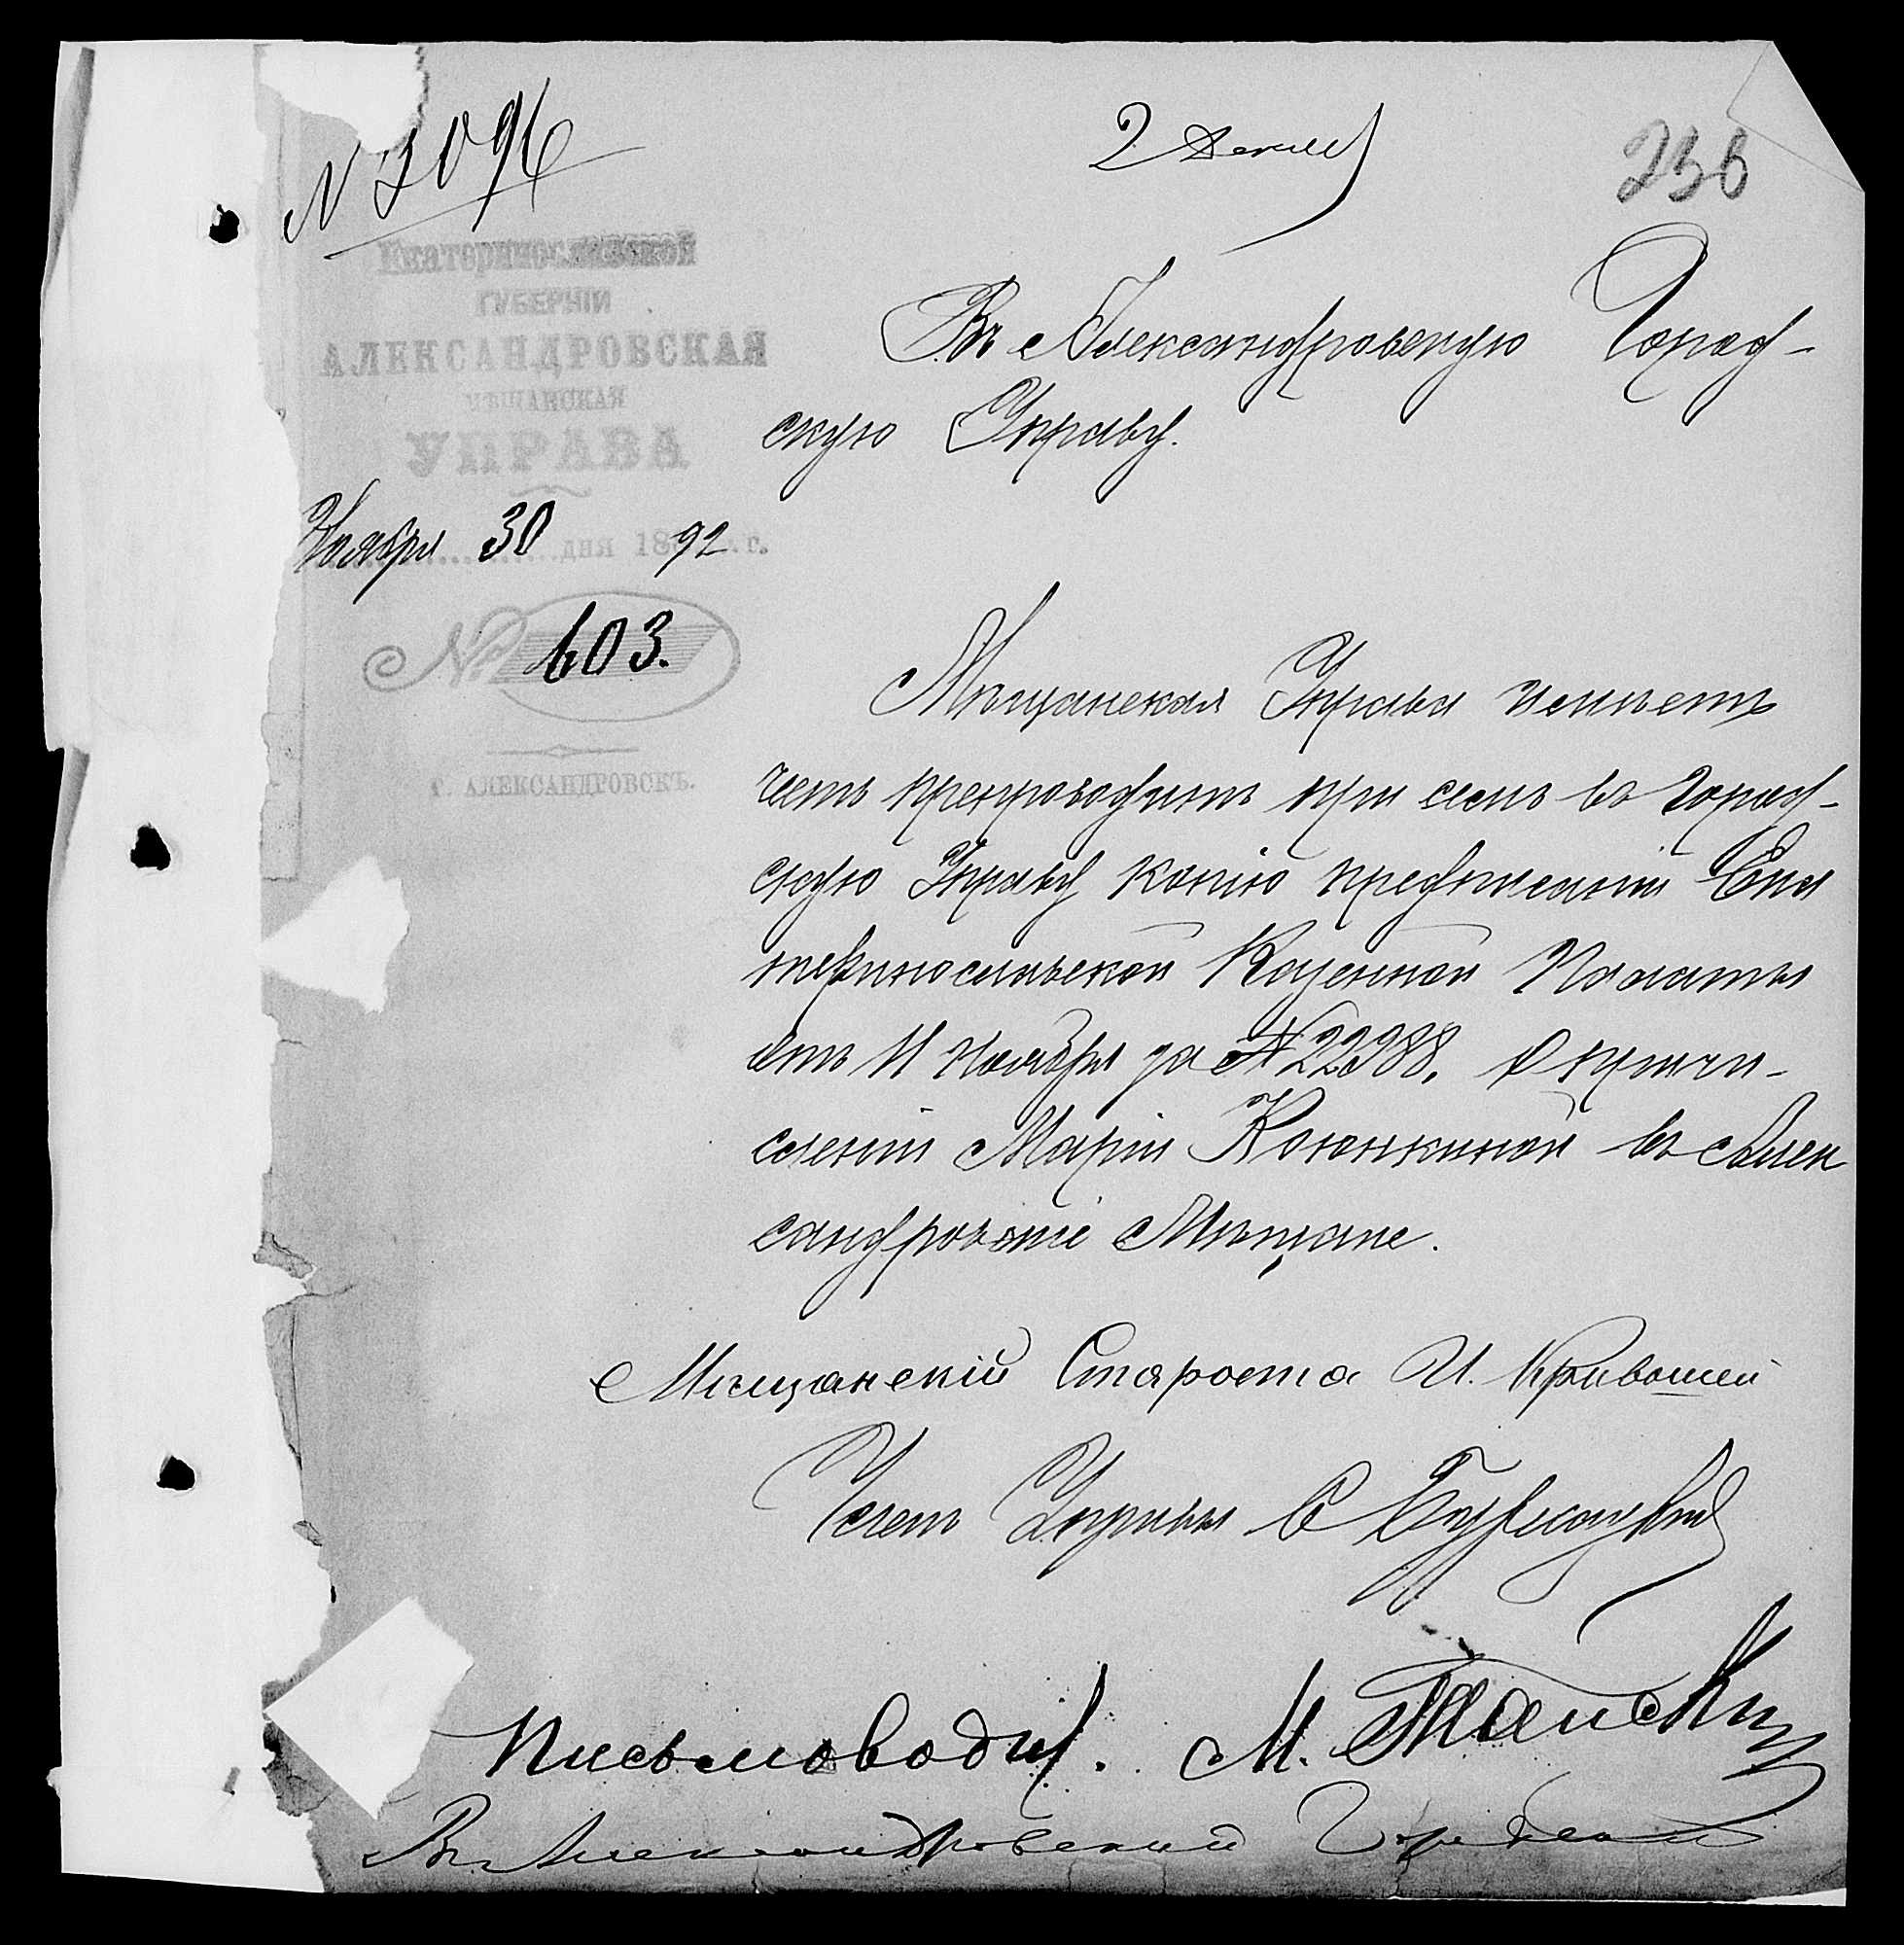 № 3096
2 Декаб
236
Екатеринославской
ГУБЕРНІИ
АЛЕКСАНДРОВСКАЯ
МѢЩАНСКАЯ
УПРАВА
Ноября 30 дня 1892 г.
№ 603.
Г. АЛЕКСАНДРОВСКЪ.
Въ Александровскую Город-
скую Управу.
Мѣщанская Управа имѣетъ
честь препроводить при семъ въ Город-
скую Управу копію предписанія Ека
теринославской Казенной Палаты
отъ 11 Ноября за № 22988, о причи-
сленіи Маріи Колонкиной въ Алек
сандровскіе Мѣщане.
Мѣщанскій Староста И. Кривошей
Член Управы
Письмовод. М.
Въ Александровский